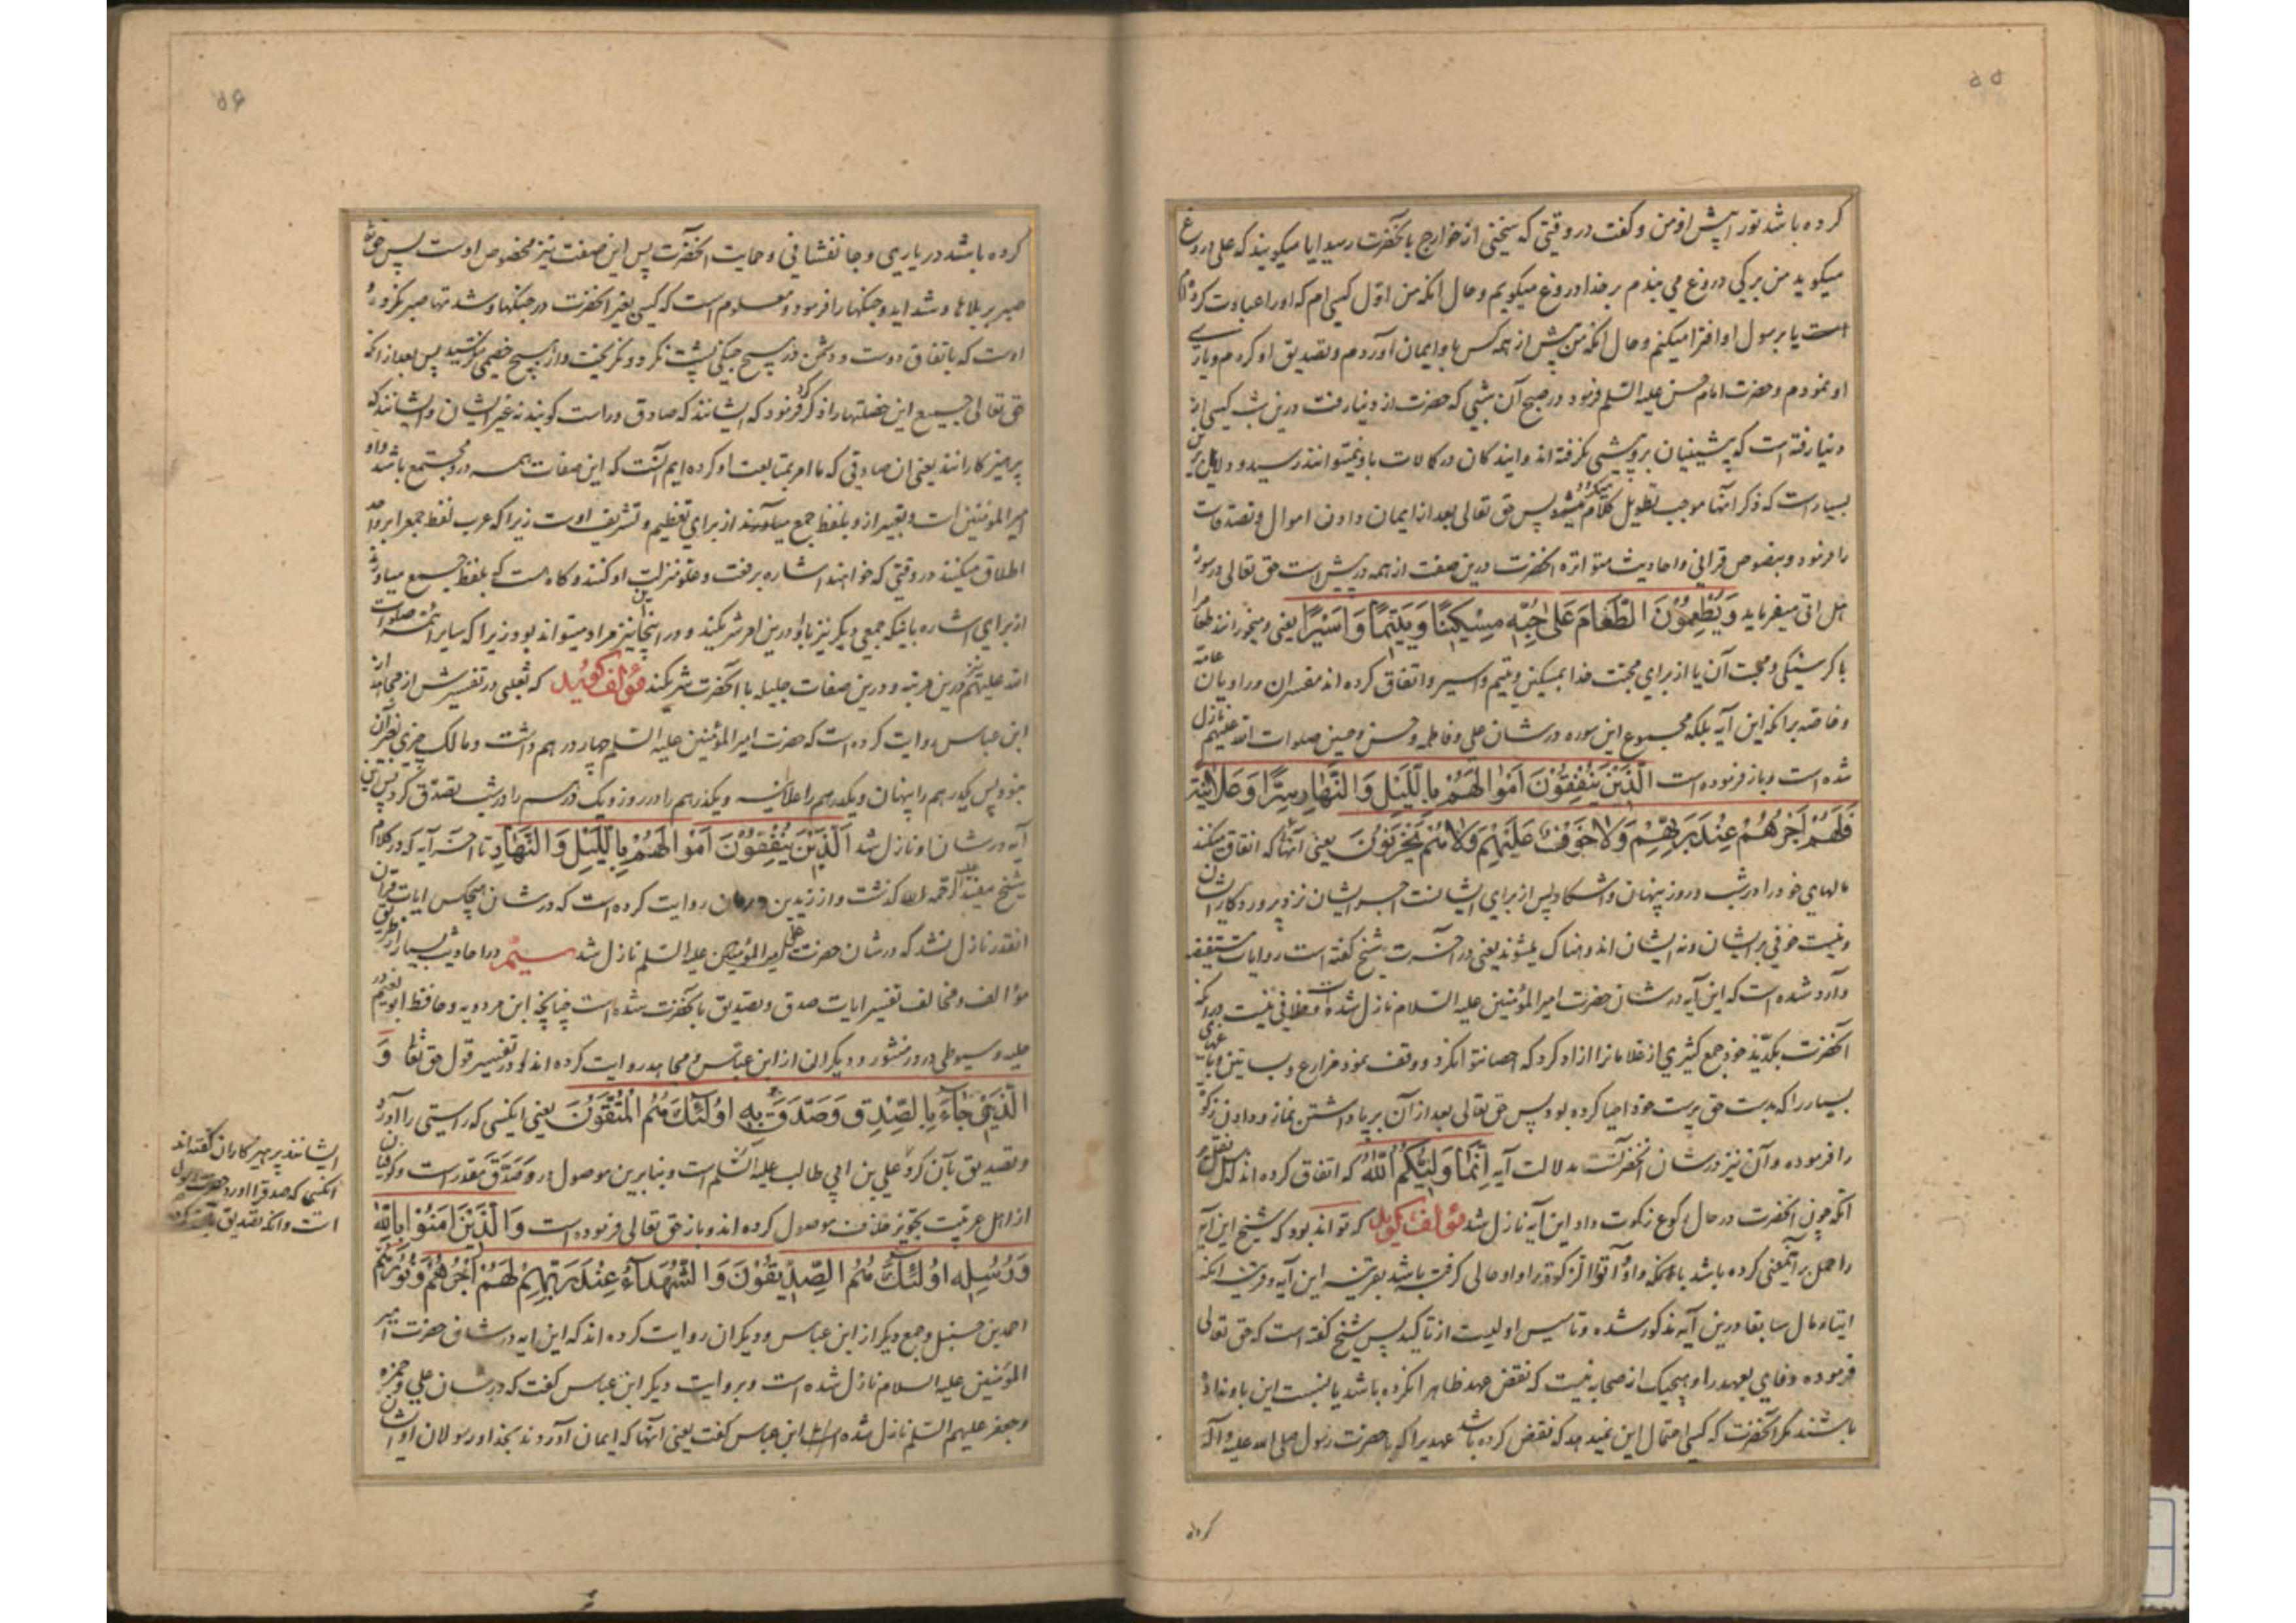 ۵۵
کرده باشد تو را پیش از من و گفت در وقتی که سخنی از خوارج بآنحضرت رسید ایا میکویند که علی دروغ
میکوید من بر کی دروغ می بندم بر خدا دروغ میکویم و حال انکه من اوّل کسی ام که او را عبادت کرده ام
است یا بر سول او افترا میکنم و حال انکه من پیش از همه کس باو ایمان آوردم و تصدیق او کردم و یاری
او نمودم و حضرت امام حسن علیه السلم فرمود در صبح آن شبی که حضرت از دنیا رفت درین شب کسی از
دنیا رفته است که پیشینیان برو پیشی نکرفته اند و ایندکان در کمالات باو نمیتوانند رسید و دلایل برین
بسیار است که ذکر آنها موجب تطویل کلام میشود پس حق تعالی بعد از ایمان دادن اموال و تصدقات
را فرمود و بنصوص قرانی و احادیث متواتره آنحضرت درین صفت از همه در پیش است حق تعالی در سورهٔ
هل اتی میفرماید وَ یُطْعِمُوْنَ الطَّعٰامَ عَلٰی حُبِّهٖ مِسْکیٖنًا وَ یَتیٖمًا وَ اَسیٖرًا یعنی و میخورانند طعام
با کرسنکی و محبت آن یا از برای محبت خدا بمسکین و یتیم و اسیر و اتفاق کرده اند مفسران و راویان عامّه
و خاصّه بر انکه این آیه بلکه مجموع این سوره در شان علی و فاطمه و حسن و حسین صلوات الله علیهم نازل
شده است و باز فرموده است الَّذیٖنَ یُنْفِقُوْنَ اَمْوٰالَهُمْ بِاللَّیْلِ وَ النَّهٰارِ سِرًّا وَ عَلٰانِیَةً
فَلَهُمْ اَجْرُهُمْ عِنْدَ رَبِّهِمْ وَ لٰا خَوْفٌ عَلَیْهِمْ وَ لٰا هُمْ یَحْزَنُوْنَ یعنی آنها که انفاق میکنند
مالهای خود را در شب و روز پنهان و اشکارا پس از برای ایشانست اجر ایشان نزد پروردکار ایشان
و نیست خوفی بر ایشان و نه ایشان اندوهناک میشوند یعنی در آخرت شیخ کفته است روایات مستفیضه
وارد شده است که این آیه در شان حضرت امیر المؤمنین علیه السلام نازل شده است و خلافی نیست در انکه
آنحضرت بکدّ ید خود جمع کثیری از غلامانرا ازاد کرد که احصا نتوانکرد و وقف نمود مزارع و بساتین
بسیار را که بدست حق پرست خود احیا کرده بود پس حق تعالی بعد از آن بر پا داشتن نماز و دادن زکوة
را فرموده و آن نیز در شان آنحضرتست بدلالت آیه اِنَّمٰا وَلِیُّکُمُ اللّٰهُ که اتفاق کرده اند اهل نقل بر
آنکه چون آنحضرت در حال رکوع زکوة داد این آیه نازل شد مؤلف کوید که تواند بود که شیخ این آیه
را حمل بر آنمعنی کرده باشد بانکه واو و آتوا الزکوة را واو حالی کرفته باشد بقرینه این آیه و قرینه انکه
ایتاء مال سابقا درین آیه مذکور شده و تاسیس اولیست از تاکید پس شیخ کفته است که حق تعالی
فرموده وفای بعهد را و هیچیک از صحابه نیست که نقض عهد ظاهرا نکرده باشد یا نسبت این باو نداده
باشند مکر آنحضرت که کسی احتمال این نمیدهد که نقض کرده باشد عهدیرا که با حضرت رسول صلی الله علیه و آله
کرده
۵۶
کرده باشد در یاری و جانفشانی و حمایت آنحضرت پس این صفت نیز مخصوص اوست پس حق تعالی
صبر بر بلاها و شداید و جنکها را فرمود و معلوم است که کسی بغیر آنحضرت در جنکها و شدتها صبر نکرد و
اوست که باتفاق دوست و دشمن در هیچ جنکی پشت نکرد و نکریخت و از هیچ خصمی نترسید پس بعد از انکه
حق تعالی جمیع این خصلتها را ذکر کرد فرمود که ایشانند که صادق و راست کویند نه غیر ایشان و ایشانند که
پرهیزکارانند یعنی ان صادقی که ما امر بمتابعت او کرده ایم آنست که این صفات همه در و مجتمع باشد و او
امیر المؤمنین است و تعبیر ازو بلفظ جمع میاورند از برای تعظیم و تشریف اوست زیرا که عرب لفظ جمع را بر واحد
اطلاق میکنند در وقتی که خواهند اشاره برفعت و علوّ منزلت او کنند و کاه هست که بلفظ جمع میاورند
از برای اشاره بانکه جمعی دیکر نیز باو درین امر شریکند و در اینجا این نیز مراد میتواند بود زیرا که سایر ائمه صلوات
الله علیهم نیز درین مرتبه و درین صفات جلیله با آنحضرت شریکند مؤلف کوید که ثعلبی در تفسیرش از مجاهد از
ابن عباس روایت کرده است که حضرت امیر المؤمنین علیه السلم چهار درهم داشت و مالک چیزی بغیر آن
نبود پس یکدرهم را پنهان و یکدرهم را علانیه و یکدرهم را در روز و یک درهم را در شب تصدّق کرد پس این
آیه در شان او نازل شد اَلَّذیٖنَ یُنْفِقُوْنَ اَمْوٰالَهُمْ بِاللَّیْلِ وَ النَّهٰارِ تا آخر آیه که در کلام
شیخ مفید علیه الرحمه کذشت و از زیدبن رومان روایت کرده است که در شان هیچکس ایات قران
انقدر نازل نشد که در شان حضرت علی امیر المؤمنین علیه السلم نازل شد سیم در احادیث بسیار از طریق
مؤالف و مخالف تفسیر ایات صدق و تصدیق بآنحضرت شده است چنانچه ابن مردویه و حافظ ابو نعیم در
حلیه و سیوطی در در منثور و دیکران از ابن عباس و مجاهد روایت کرده اند که در تفسیر قول حق تعالی وَ
الَّذیٖ جٰاءَ بِالصِّدْقِ وَ صَدَّقَ بِهٖ اُولٰئِکَ هُمُ الْمُتَّقُوْنَ یعنی انکسی که راستی را آورد
و تصدیق بآن کرد علی بن ابی طالب علیه السّلم است و بنا برین موصول در و صَدَّقَ مقدر است و کوفیان
از اهل عربیت تجویز حذف موصول کرده اند و باز حق تعالی فرموده است وَ الَّذیٖنَ اٰمَنُوْا بِاللّٰهِ
وَ رُسُلِهٖ اُولٰئِکَ هُمُ الصِّدّیٖقُوْنَ وَ الشُّهَدٰاءُ عِنْدَ رَبِّهِمْ لَهُمْ اَجْرُهُمْ وَ نُوْرُهُمْ
احمد بن حنبل و جمع دیکر از ابن عباس و دیکران روایت کرده اند که این ایه در شان حضرت امیر
المؤمنین علیه السلام نازل شده است و بروایت دیکر ابن عباس کفت که در شان علی و حمزه
و جعفر علیهم السلم نازل شده است ابن عباس کفت یعنی آنها که ایمان آوردند بخدا و رسولان او ایشان
ایشانند پرهیزکاران کفته اند
انکسی که صدق را آورد حضرت رسول
است و انکه تصدیق بآن کرد